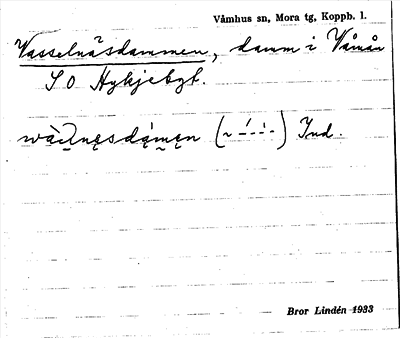 Våmhus sn, Mora tg, Koppb. l.
Vasselnäsdammen, damm i Våmån
S O Hykjebyt.
Ind.
Bror Lindén 1933